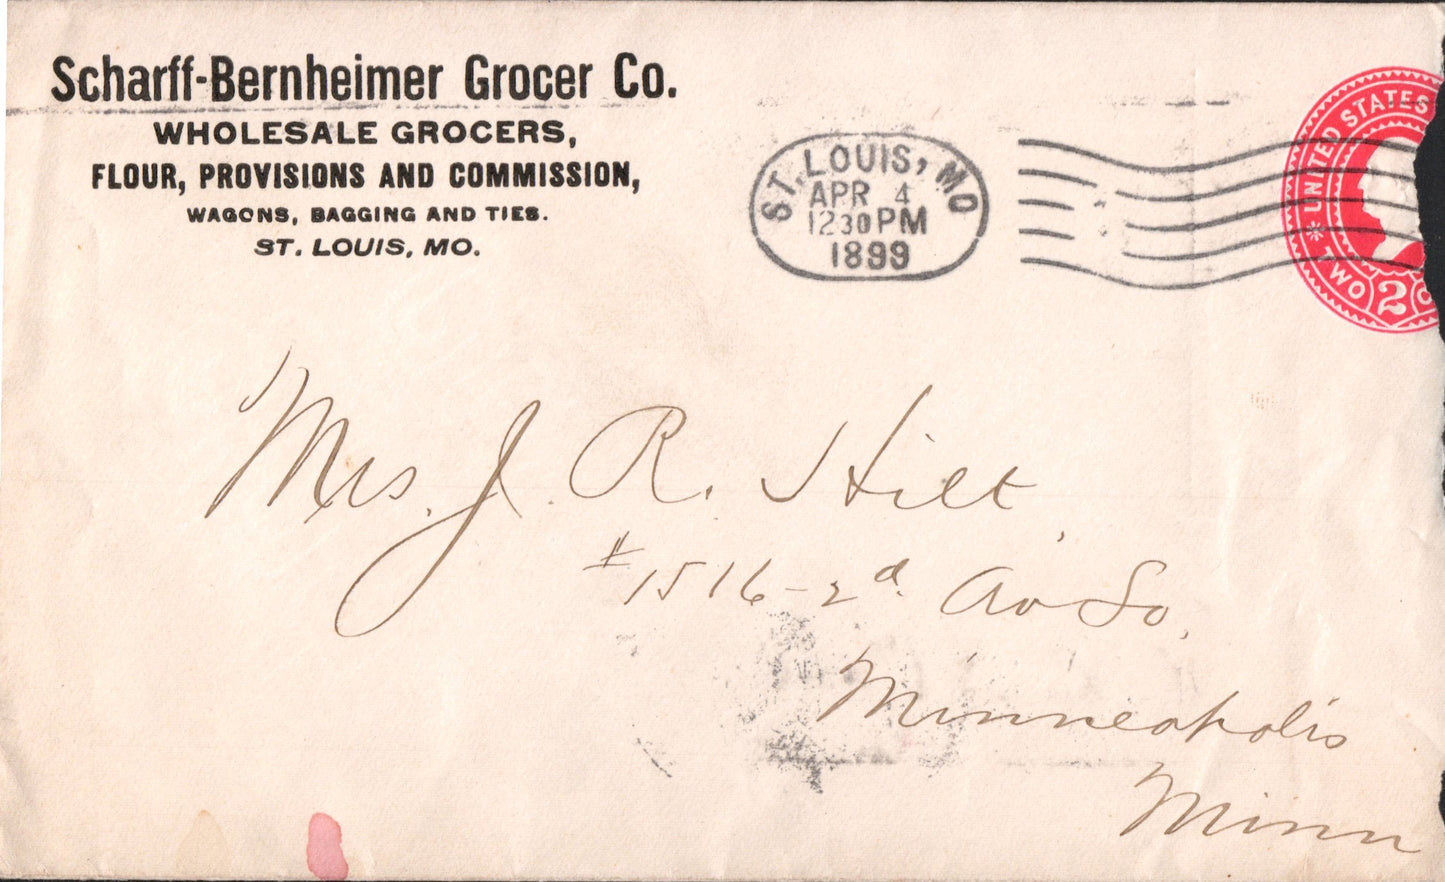 Scharff-Bernheimer Grocer Co.
WHOLESALE GROCERS,
FLOUR, PROVISIONS AND COMMISSION,
WAGONS, BAGGING AND TIES.
ST. LOUIS, MO.
ST. LOUIS, MO
APR 4
1230PM
1899
UNITED STATES
TWO
2
Mrs. J. R. Hilt,
#1516-2d. Av So,
Minneapolis
Minn